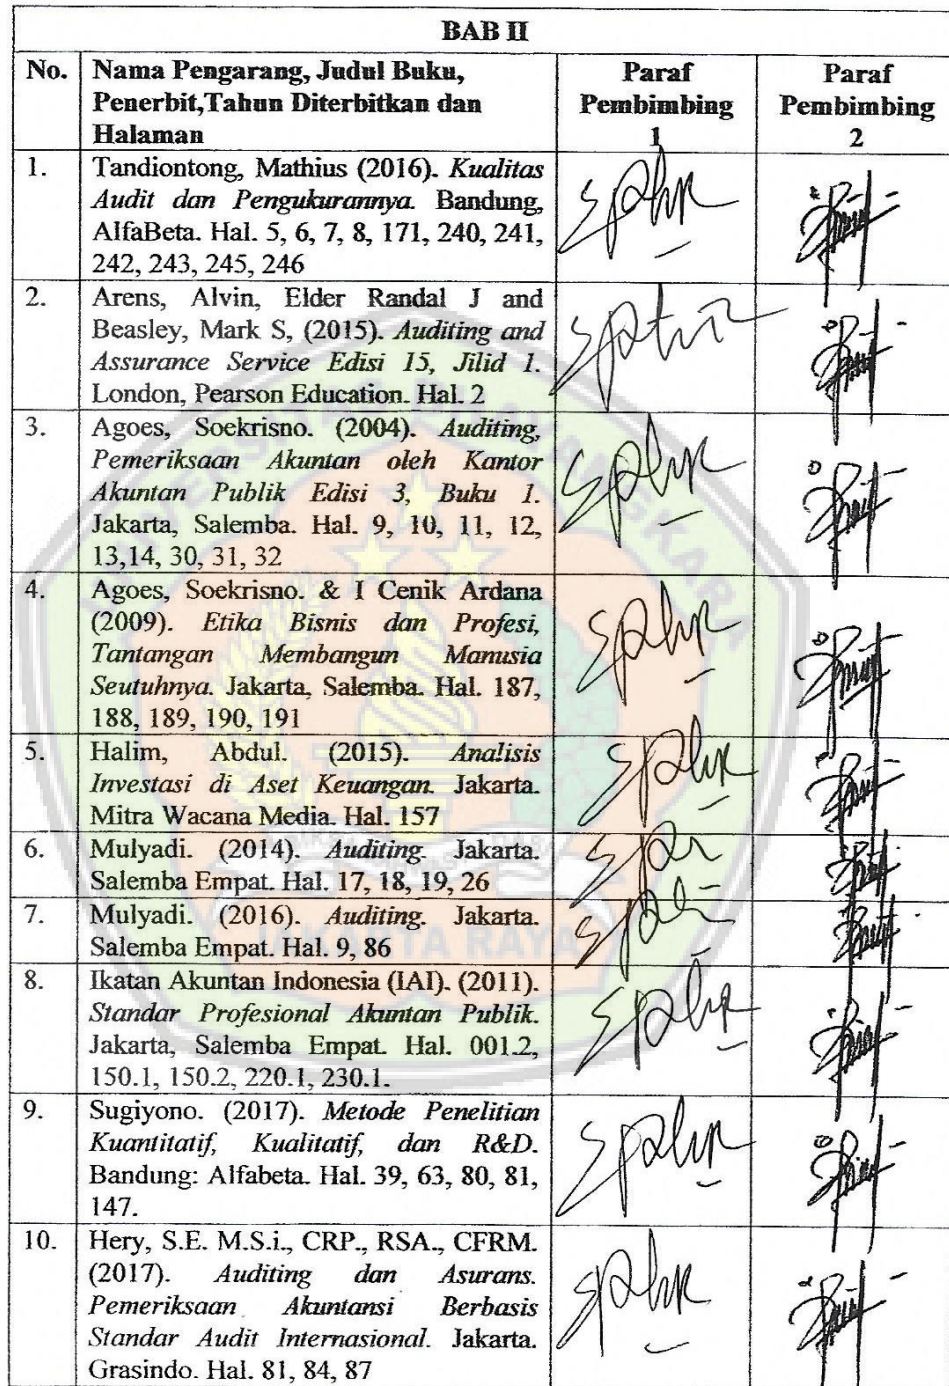 BAB II
No. Nama Pengarang, Judul Buku, Penerbit,Tahun Diterbitkan dan Halaman Paraf Pembimbing 1 Paraf Pembimbing 2
1. Tandiontong, Mathius (2016). Kualitas
Audit dan Pengukurannya. Bandung,
AlfaBeta. Hal. 5, 6, 7, 8, 171, 240, 241,
242, 243, 245, 246
2. Arens, Alvin, Elder Randal J and
Beasley, Mark S, (2015). Auditing and
Assurance Service Edisi 15, Jilid 1.
London, Pearson Education. Hal. 2
3. Agoes, Soekrisno. (2004). Auditing,
Pemeriksaan Akuntan oleh Kantor
Akuntan Publik Edisi 3, Buku 1.
Jakarta, Salemba. Hal. 9, 10, 11, 12,
13,14, 30, 31, 32
4. Agoes, Soekrisno. & I Cenik Ardana
(2009). Etika Bisnis dan Profesi,
Tantangan Membangun Manusia
Seutuhnya. Jakarta, Salemba. Hal. 187,
188, 189, 190, 191
5. Halim, Abdul. (2015). Analisis
Investasi di Aset Keuangan. Jakarta.
Mitra Wacana Media. Hal. 157
6. Mulyadi. (2014). Auditing. Jakarta.
Salemba Empat. Hal. 17, 18, 19, 26
7. Mulyadi. (2016). Auditing. Jakarta.
Salemba Empat. Hal. 9, 86
8. Ikatan Akuntan Indonesia (IAI). (2011).
Standar Profesional Akuntan Publik.
Jakarta, Salemba Empat. Hal. 001.2,
150.1, 150.2, 220.1, 230.1.
9. Sugiyono. (2017). Metode Penelitian
Kuantitatif, Kualitatif, dan R&D.
Bandung: Alfabeta. Hal. 39, 63, 80, 81,
147.
10. Hery, S.E. M.S.i., CRP., RSA., CFRM.
(2017). Auditing dan Asurans.
Pemeriksaan Akuntansi Berbasis
Standar Audit Internasional. Jakarta.
Grasindo. Hal. 81, 84, 87
UNIVERSITAS BHAYANGKARA
JAKARTA RAYA